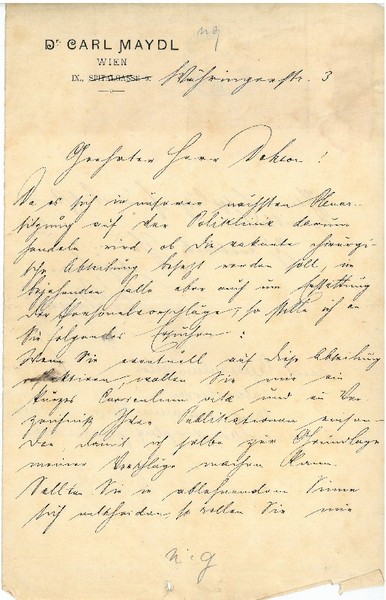 ng
Dr. CARL MAYDL
WIEN
IX., SPITALGASSE Währingerstr. 3
Geehrter Herr Doktor!
Da es sich in unserer nächsten Plenar-
sitzung auf der Poliklinik darum
handeln wird, ob die vakante chirurgi-
sche Abteilung besetzt werden soll, im
bejahenden Falle aber auch um Erstattung
der Personalvorschläge, so stelle ich an
Sie folgendes Ersuchen:
Wenn Sie eventuell auf diese Abteilung
reflektieren, wollen Sie mir ein
kurzes Curriculum vitae und ein Ver-
zeichniß Ihrer Publikationen einsen-
den damit ich selbe zur Grundlage
meiner Vorschläge machen kann.
Sollten Sie in ablehnendem Sinne
sich entscheiden, so wollen Sie mir
n. g